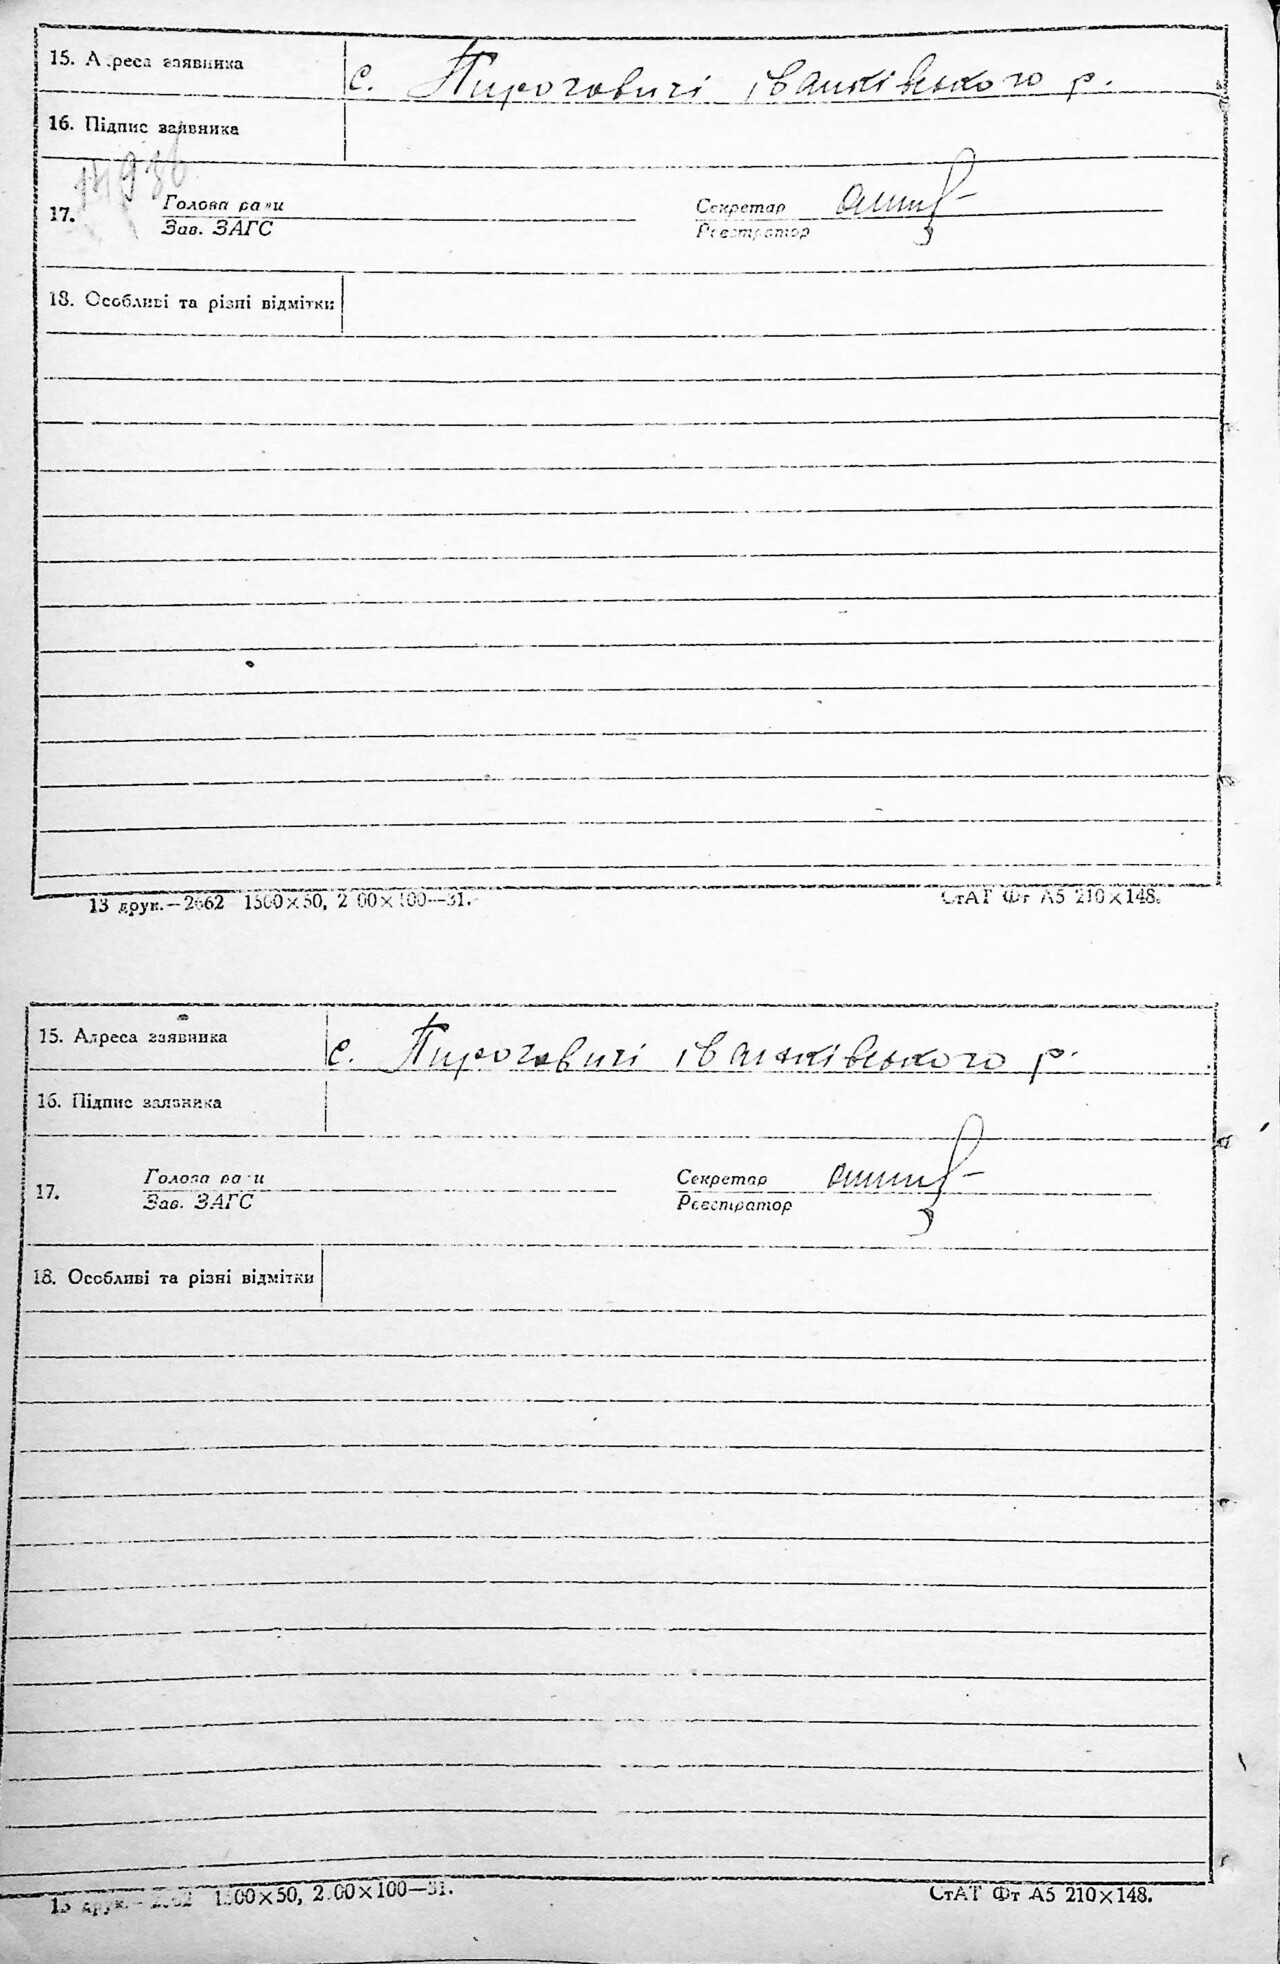 15. Адреса заявника с. Пироговичі іванківського р.
16. Підпис заявника
17. Голова ради Секретар
Зав. ЗАГС Реєстратор
18. Особливі та різні відмітки
13 друк.—2662 1500×50, 2 00×100—31.
СтАТ Фт А5 210×148.
15. Адреса заявника с. Пироговичі іванківського р.
16. Підпис заявника
17. Голова ради Секретар
Зав. ЗАГС Реєстратор
18. Особливі та різні відмітки
13 друк. 1500×50, 2.00×100—31.
СтАТ Фт А5 210×148.